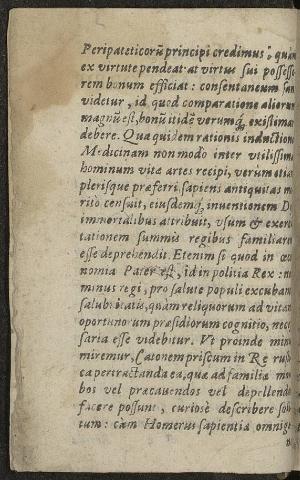 Peripateticorū principi credimus, quam
ex virtute pendeat at virtus sui possesso
rem bonum efficiat: consentaneum san
videtur, id quod comparatione aliorum
magnū est, bonū itidē verumq́, existimar
debere. Qua quidem rationis inductione
Medicinam non modo inter utilissima
hominum vitæ artes recipi, verum etiam
plerisque præferri, sapiens antiquitas me
ritò censuit, eiusdemq́, inuentionem D
immortalibus attribuit, vsum & exerci
tationem summis regibus familiarem
esse deprehendit. Etenim si quod in œco
nomia Pater est, id in politia Rex: no
minus regi, pro salute populi excubant
salubritatis, quàm reliquorum ad vitam
oportunorum præsidiorum cognitio, neces
saria esse videbitur. Vt proinde minus
miremur, Catonem priscum in Re rusti
ca pertractanda ea, quæ ad familiæ mor
bos vel præcauendos vel depellendos
facere possunt, curiosè describere soli
tum: càm Homerus sapientia omnige